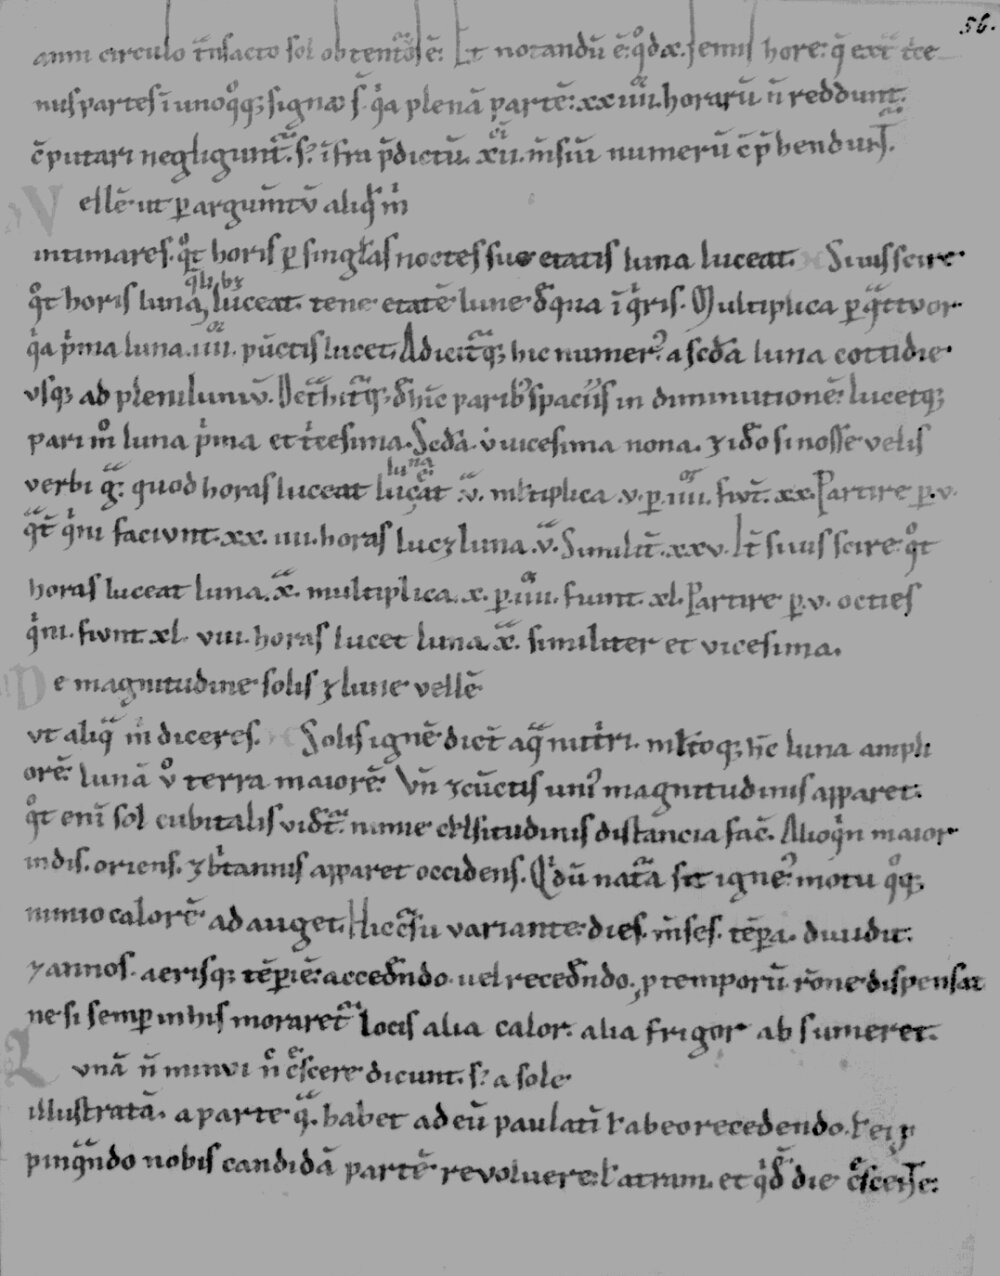 56.
anni circulo t̄nsacto sol obtent᷑ ē: Et notandū ē: qd̄ x. semis horę: q̄ exct̄ t̄ce
nus partes ī unoq̊q; signo s̄ q̇a plenā partē: xxiiii. horarū n̄ reddunt.
c̄putari negligunt᷑. s; īfra p̄dictū. xii. m̄siū numerū c̄p̄hendunt᷑.
Vellē ut p argum̄tū aliq̄ m̊
intimares. q̊t horis p singlas noctes suę etatis luna luceat. Si uis scire
q̊t horis luna qlib; luceat. tene etatē lune d̄ qua ī q̇ris. Multiplica p q̄ttuor
q̇a p̄ma luna .iiii. pūctis lucet. Adicit᷑q; hic numer᷒ a scd̄a luna cottidie
usq; ad pleniluniū. Det̄hit᷑q; d̄hīc parib᷒ spaciis in diminutionē: lucetq;
pari m̊ luna p̄ma et t̄cesima. Scd̄a ⁊ uicesima nona. ⁊ id̊o si nosse uelis
uerbi g̃. quod horas luceat luna .v. mltiplica .v. p .iiii. fiūt .xx. Partire p .v.
q̄t q̇ni faciunt .xx. iiii. horas luc⁊ luna .v. Similit̄ .xxv. It̄ si uis scire q̊t
horas luceat luna .x. multiplica .x. p .iiii. fiunt .xl. Partire p .v. octies
q̇ni. fiunt .xl. viii. horas lucet luna .x. similiter et vicesima.
De magnitudine solis ⁊ lune vellē
ut aliq̄ m̊ diceres. Solis ignē dict̄ aq̄ nutriri. mltoq; h̄c luna ampli
orē. lunā v̊ terra maiorē. Vn̄ ⁊ cūctis uni᷒ magnitudinis apparet.
q̊t enī sol cubitalis uidet᷑. nimię celsitudinis distancia fac̄. Alioq̇n maior
indis. oriens. ⁊ b̄tannis apparet occidens. Q̇ dū nat᷑a sit igne᷒ motu q̊q;
nimio calorē adauget. Hic c᷑su uariante. dies. m̄ses. tēpora. diuidit.
⁊ annos. aerisq; tēpiē: accedendo. uel recedendo. p temporū r̄one dispensat
ne si semp in his moraret᷑ locis alia calor. alia frigor absumeret.
Lunā n̄ minui n̄ c̄scere dicunt. s; a sole
illustratā. a parte q̄. habet ad eū paulatī t̄ ab eo recedendo. t̄ ei p
pinquando nobis candidā partē reuoluere: t̄ atram. et q̇d̄ die c̄scente: